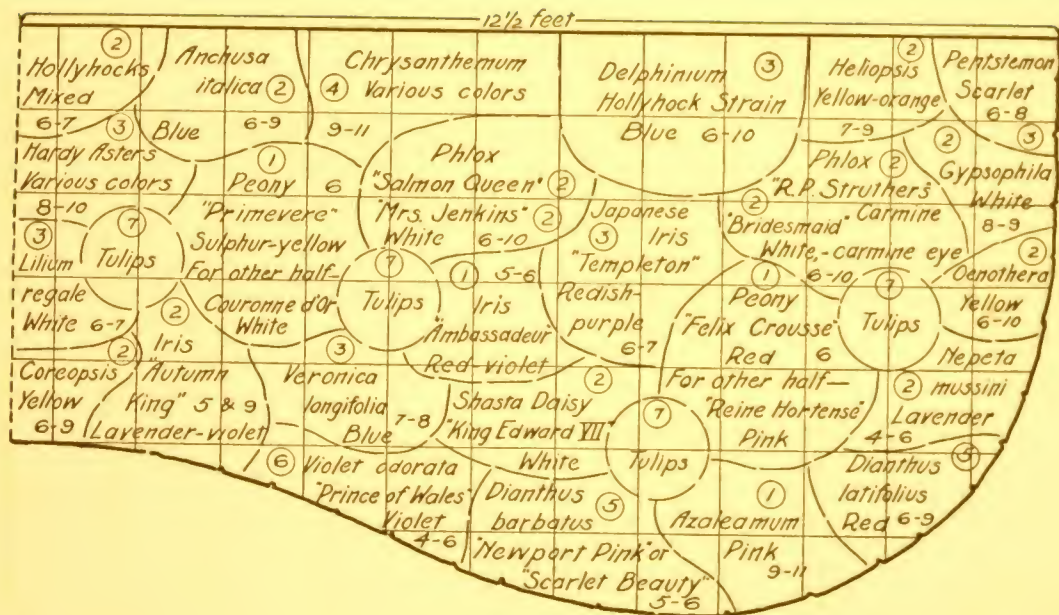 12½ feet
②
Hollyhocks
Mixed
6-7
Anchusa
italica ②
Blue
6-9
Chrysanthemum
④ Various colors
9-11
Delphinium ③
Hollyhock Strain
Blue 6-10
②
Heliopsis
Yellow-orange
7-9
Pentstemon
Scarlet
6-8
③
③
Hardy Asters
Various colors
8-10
①
Peony 6
"Primevere"
Sulphur-yellow
For other half-
Couronne d'Or
White
Phlox
"Salmon Queen" ②
"Mrs. Jenkins" ②
White 6-10
Japanese
③ Iris
"Templeton"
Redish-
purple
6-7
Phlox ②
"R.P. Struthers"
Carmine
②
"Bridesmaid"
White,-carmine eye
6-10
②
Gypsophila
White
8-9
⑦
Tulips
③
Lilium
regale
White 6-7
②
Iris
"Autumn
King" 5 & 9
Lavender-violet
⑦
Tulips
① 5-6
Iris
"Ambassadeur"
Red-violet
①
Peony
"Felix Crousse"
Red 6
For other half—
"Reine Hortense"
Pink
⑦
Tulips
②
Oenothera
Yellow
6-10
②
Coreopsis
Yellow
6-9
③
Veronica
longifolia
Blue 7-8
②
Shasta Daisy
"King Edward VII"
White
⑦
Tulips
Nepeta
② mussini
Lavender
4-6
⑥ Violet odorata
"Prince of Wales"
Violet
4-6
Dianthus
barbatus ⑤
"Newport Pink" or
"Scarlet Beauty"
5-6
①
Azaleamum
Pink
9-11
Dianthus ⑤
latifolius
Red 6-9